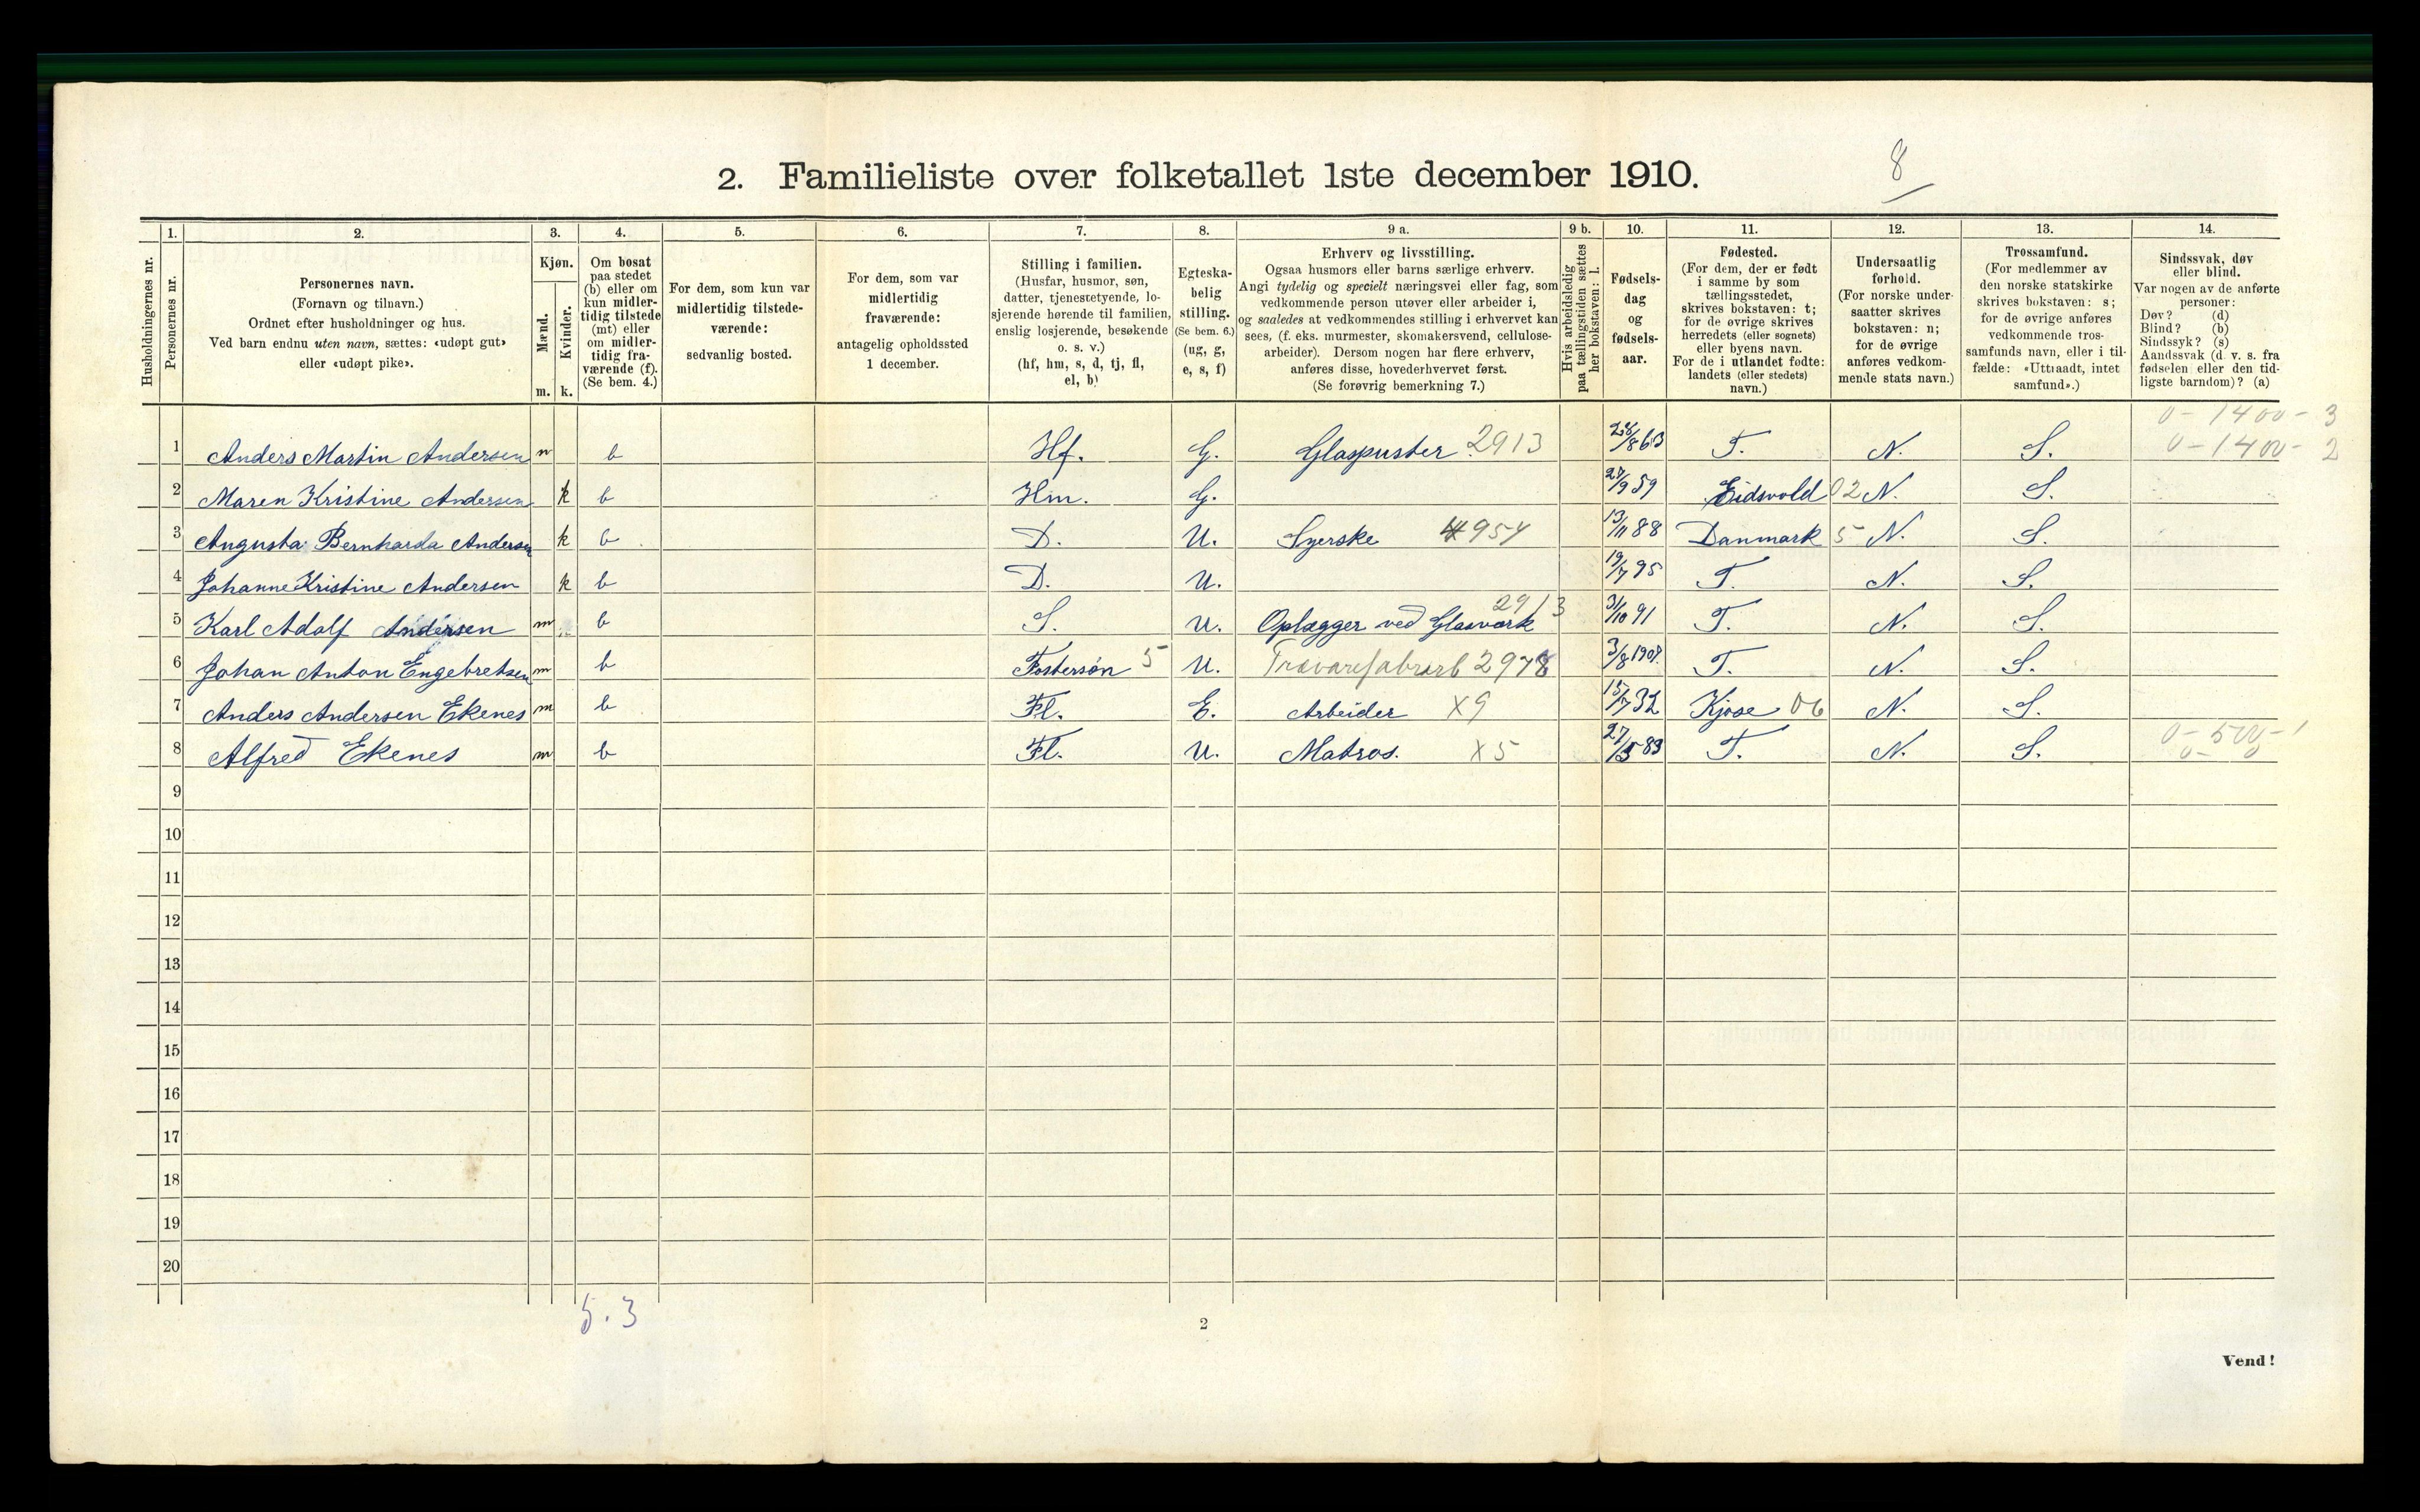 2. Familieliste over folketallet 1ste december 1910.
8
Husholdningernes nr.
1.
Personernes nr.
2.
Personernes navn.
(Fornavn og tilnavn.)
Ordnet efter husholdninger og hus.
Ved barn endnu uten navn, sættes: «udøpt gut»
eller «udøpt pike».
3.
Kjøn.
Mænd.
Kvinder.
m. k.
4.
Om bosat
paa stedet
(b) eller om
kun midler-
tidig tilstede
(mt) eller
om midler-
tidig fra-
værende (f).
(Se bem. 4.)
5.
For dem, som kun var
midlertidig tilstede-
værende:
sedvanlig bosted.
6.
For dem, som var
midlertidig
fraværende:
antagelig opholdssted
1 december.
7.
Stilling i familien.
(Husfar, husmor, søn,
datter, tjenestetyende, lo-
sjerende hørende til familien,
enslig losjerende, besøkende
o. s. v.)
(hf, hm, s, d, tj, fl,
el, b)
8.
Egteska-
belig
stilling.
(Se bem. 6.)
(ug, g,
e, s, f)
9 a.
Erhverv og livsstilling.
Ogsaa husmors eller barns særlige erhverv.
Angi tydelig og specielt næringsvei eller fag, som
vedkommende person utøver eller arbeider i,
og saaledes at vedkommendes stilling i erhvervet kan
sees, (f. eks. murmester, skomakersvend, cellulose-
arbeider). Dersom nogen har flere erhverv,
anføres disse, hovederhvervet først.
(Se forøvrig bemerkning 7.)
9 b.
Hvis arbeidsledig
paa tællingstiden sættes
her bokstaven: l.
10.
Fødsels-
dag
og
fødsels-
aar.
11.
Fødested.
(For dem, der er født
i samme by som
tællingsstedet,
skrives bokstaven: t;
for de øvrige skrives
herredets (eller sognets)
eller byens navn.
For de i utlandet fødte:
landets (eller stedets)
navn.)
12.
Undersaatlig
forhold.
(For norske under-
saatter skrives
bokstaven: n;
for de øvrige
anføres vedkom-
mende stats navn.)
13.
Trossamfund.
(For medlemmer av
den norske statskirke
skrives bokstaven: s;
for de øvrige anføres
vedkommende tros-
samfunds navn, eller i til-
fælde: «Uttraadt, intet
samfund».)
14.
Sindssvak, døv
eller blind.
Var nogen av de anførte
personer:
Døv? (d)
Blind? (b)
Sindssyk? (s)
Aandssvak (d. v. s. fra
fødselen eller den tid-
ligste barndom)? (a)
0-1400-3
1 Anders Martin Andersen m b Hf. G. Glaspuster 2913 T. N. S. 0-1400-2
2 Maren Kristine Andersen k b Hm. G. 27/9 59 Eidsvold 02 N. S.
3 Augusta Bernharda Andersen k b D. U. Syerske 4954 13/11 88 Danmark 5 N. S.
4 Johanne Kristine Andersen k b D. U. 19/7 95 T. N. S.
5 Karl Adolf Andersen m b S. U. Oplægger ved Glasværk 2913 31/10 91 T. N. S.
6 Johan Anton Engebretsen m b Fostersøn 5 U. Trævarefabrarb 2978 3/8 1908. T. N. S.
7 Anders Andersen Ekenes m b Fl. E. Arbeider X9 15/7 32 Kjose 06 N. S.
8 Alfred Ekenes m b Fl. U. Matros. X5 27/5 83 T. N. S. 0-500-1
0- 0
9
10
11
12
13
14
15
16
17
18
19
20
5.3
2
Vend!